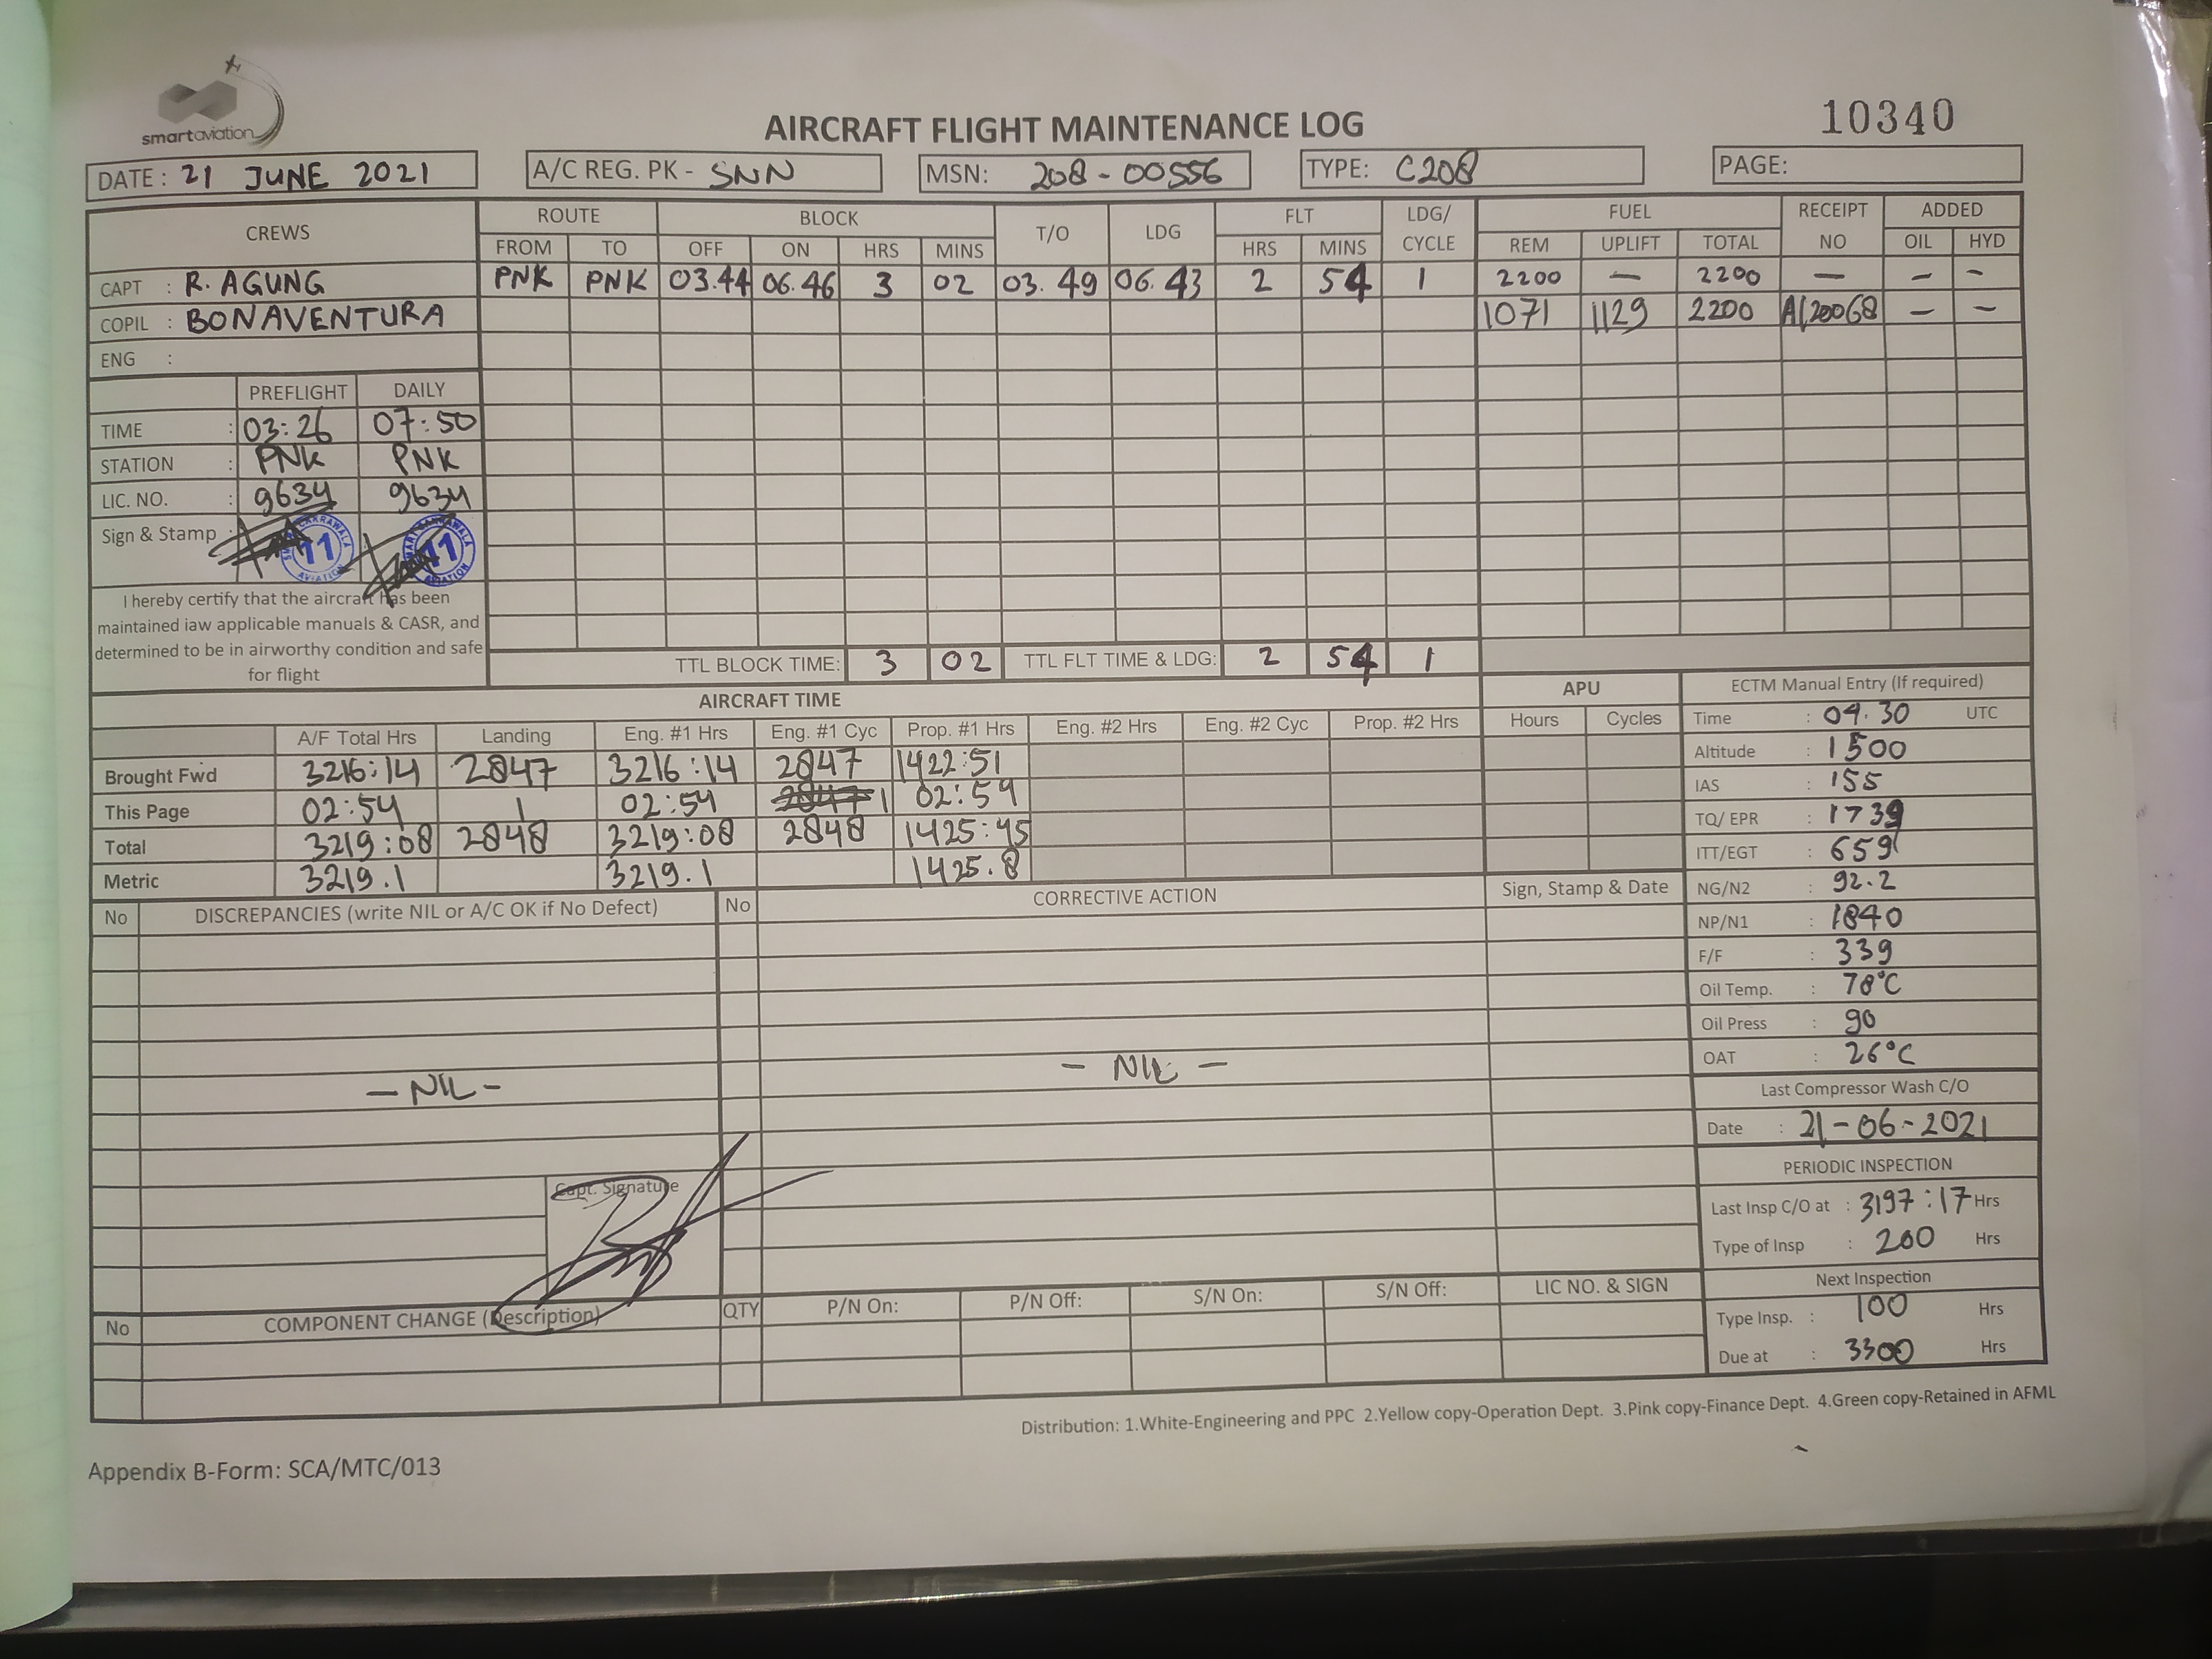 smartaviation
AIRCRAFT FLIGHT MAINTENANCE LOG
10340
DATE : 21 JUNE 2021 A/C REG. PK - SNN MSN: 208-00556 TYPE: C208 PAGE:
CREWS ROUTE BLOCK T/O LDG FLT LDG/ CYCLE FUEL RECEIPT NO ADDED
FROM TO OFF ON HRS MINS HRS MINS REM UPLIFT TOTAL OIL HYD
CAPT : R. AGUNG PNK PNK 03.44 06.46 3 02 03.49 06.43 2 54 1 2200 — 2200 — — -
COPIL : BONAVENTURA 1071 1129 2200 A/20068 — —
ENG :
PREFLIGHT DAILY
TIME : 03:26 07:50
STATION : PNK PNK
LIC. NO. : 9634 9634
Sign & Stamp : 11 11
I hereby certify that the aircraft has been
maintained iaw applicable manuals & CASR, and
determined to be in airworthy condition and safe
for flight
TTL BLOCK TIME: 3 02 TTL FLT TIME & LDG: 2 54 1
AIRCRAFT TIME APU
A/F Total Hrs Landing Eng. #1 Hrs Eng. #1 Cyc Prop. #1 Hrs Eng. #2 Hrs Eng. #2 Cyc Prop. #2 Hrs Hours Cycles
Brought Fwd 3216:14 2847 3216:14 2847 1422:51
This Page 02:54 1 02:54 1 02:54
Total 3219:08 2848 3219:08 2848 1425:45
Metric 3219.1 3219.1 1425.8
ECTM Manual Entry (If required)
Time : 04.30 UTC
Altitude : 1500
IAS : 155
TQ/ EPR : 1739
ITT/EGT : 659
NG/N2 : 92.2
NP/N1 : 1840
F/F : 339
Oil Temp. : 78°C
Oil Press : 90
OAT : 26°C
Last Compressor Wash C/O
Date : 21-06-2021
PERIODIC INSPECTION
Last Insp C/O at : 3197:17 Hrs
Type of Insp : 200 Hrs
Next Inspection
Type Insp. : 100 Hrs
Due at : 3300 Hrs
No DISCREPANCIES (write NIL or A/C OK if No Defect) No CORRECTIVE ACTION Sign, Stamp & Date
— NIL - - NIL -
Capt. Signature
No COMPONENT CHANGE (Description) QTY P/N On: P/N Off: S/N On: S/N Off: LIC NO. & SIGN
Distribution: 1.White-Engineering and PPC 2.Yellow copy-Operation Dept. 3.Pink copy-Finance Dept. 4.Green copy-Retained in AFML
Appendix B-Form: SCA/MTC/013